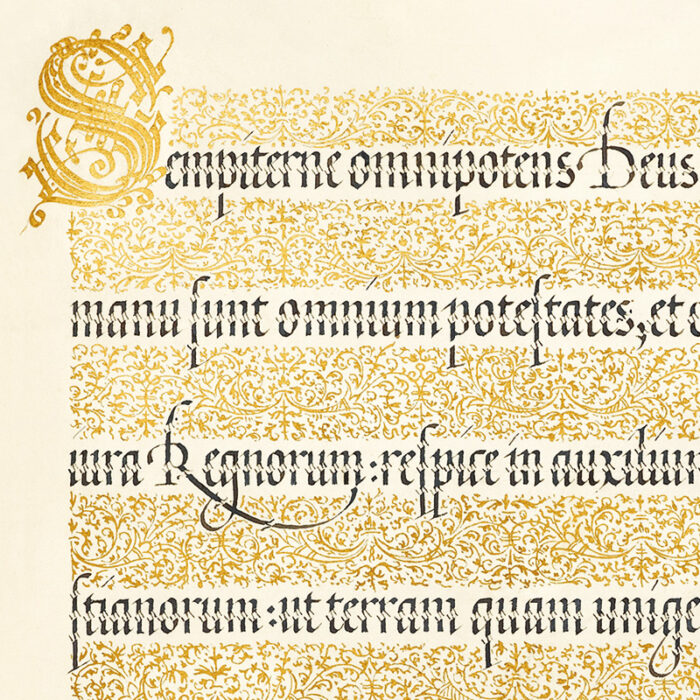 Sempiterne omnipotens Deus
manu ſunt omnium poteſtates, et
iura Regnorum: reſpice in auxilium
ſtianorum: ut terram quam unige